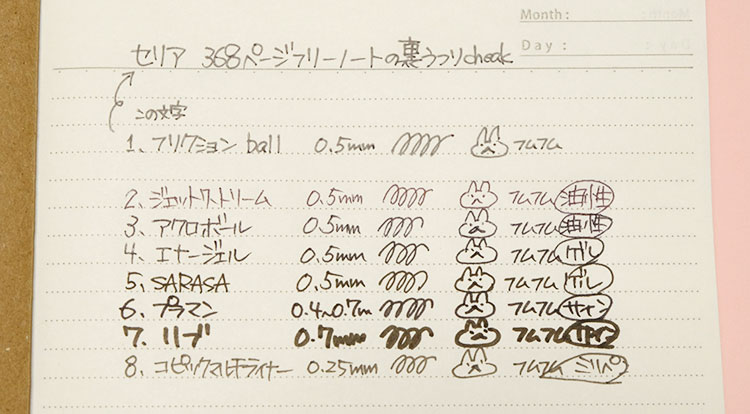 Month:
Day:
セリア 368ページフリーノートの裏うつりcheak
この文字
1、フリクションball 0.5mm フムフム
2、ジェットストリーム 0.5mm フムフム 油性
3、アクロボール 0.5mm フムフム 油性
4、エナージェル 0.5mm フムフム ゲル
5、SARASA 0.5mm フムフム ゲル
6、プラマン 0.4~0.7m フムフム サイン
7、リブ 0.7mm フムフム サイン
8、コピックマルチライナー 0.25mm フムフム ミリペ